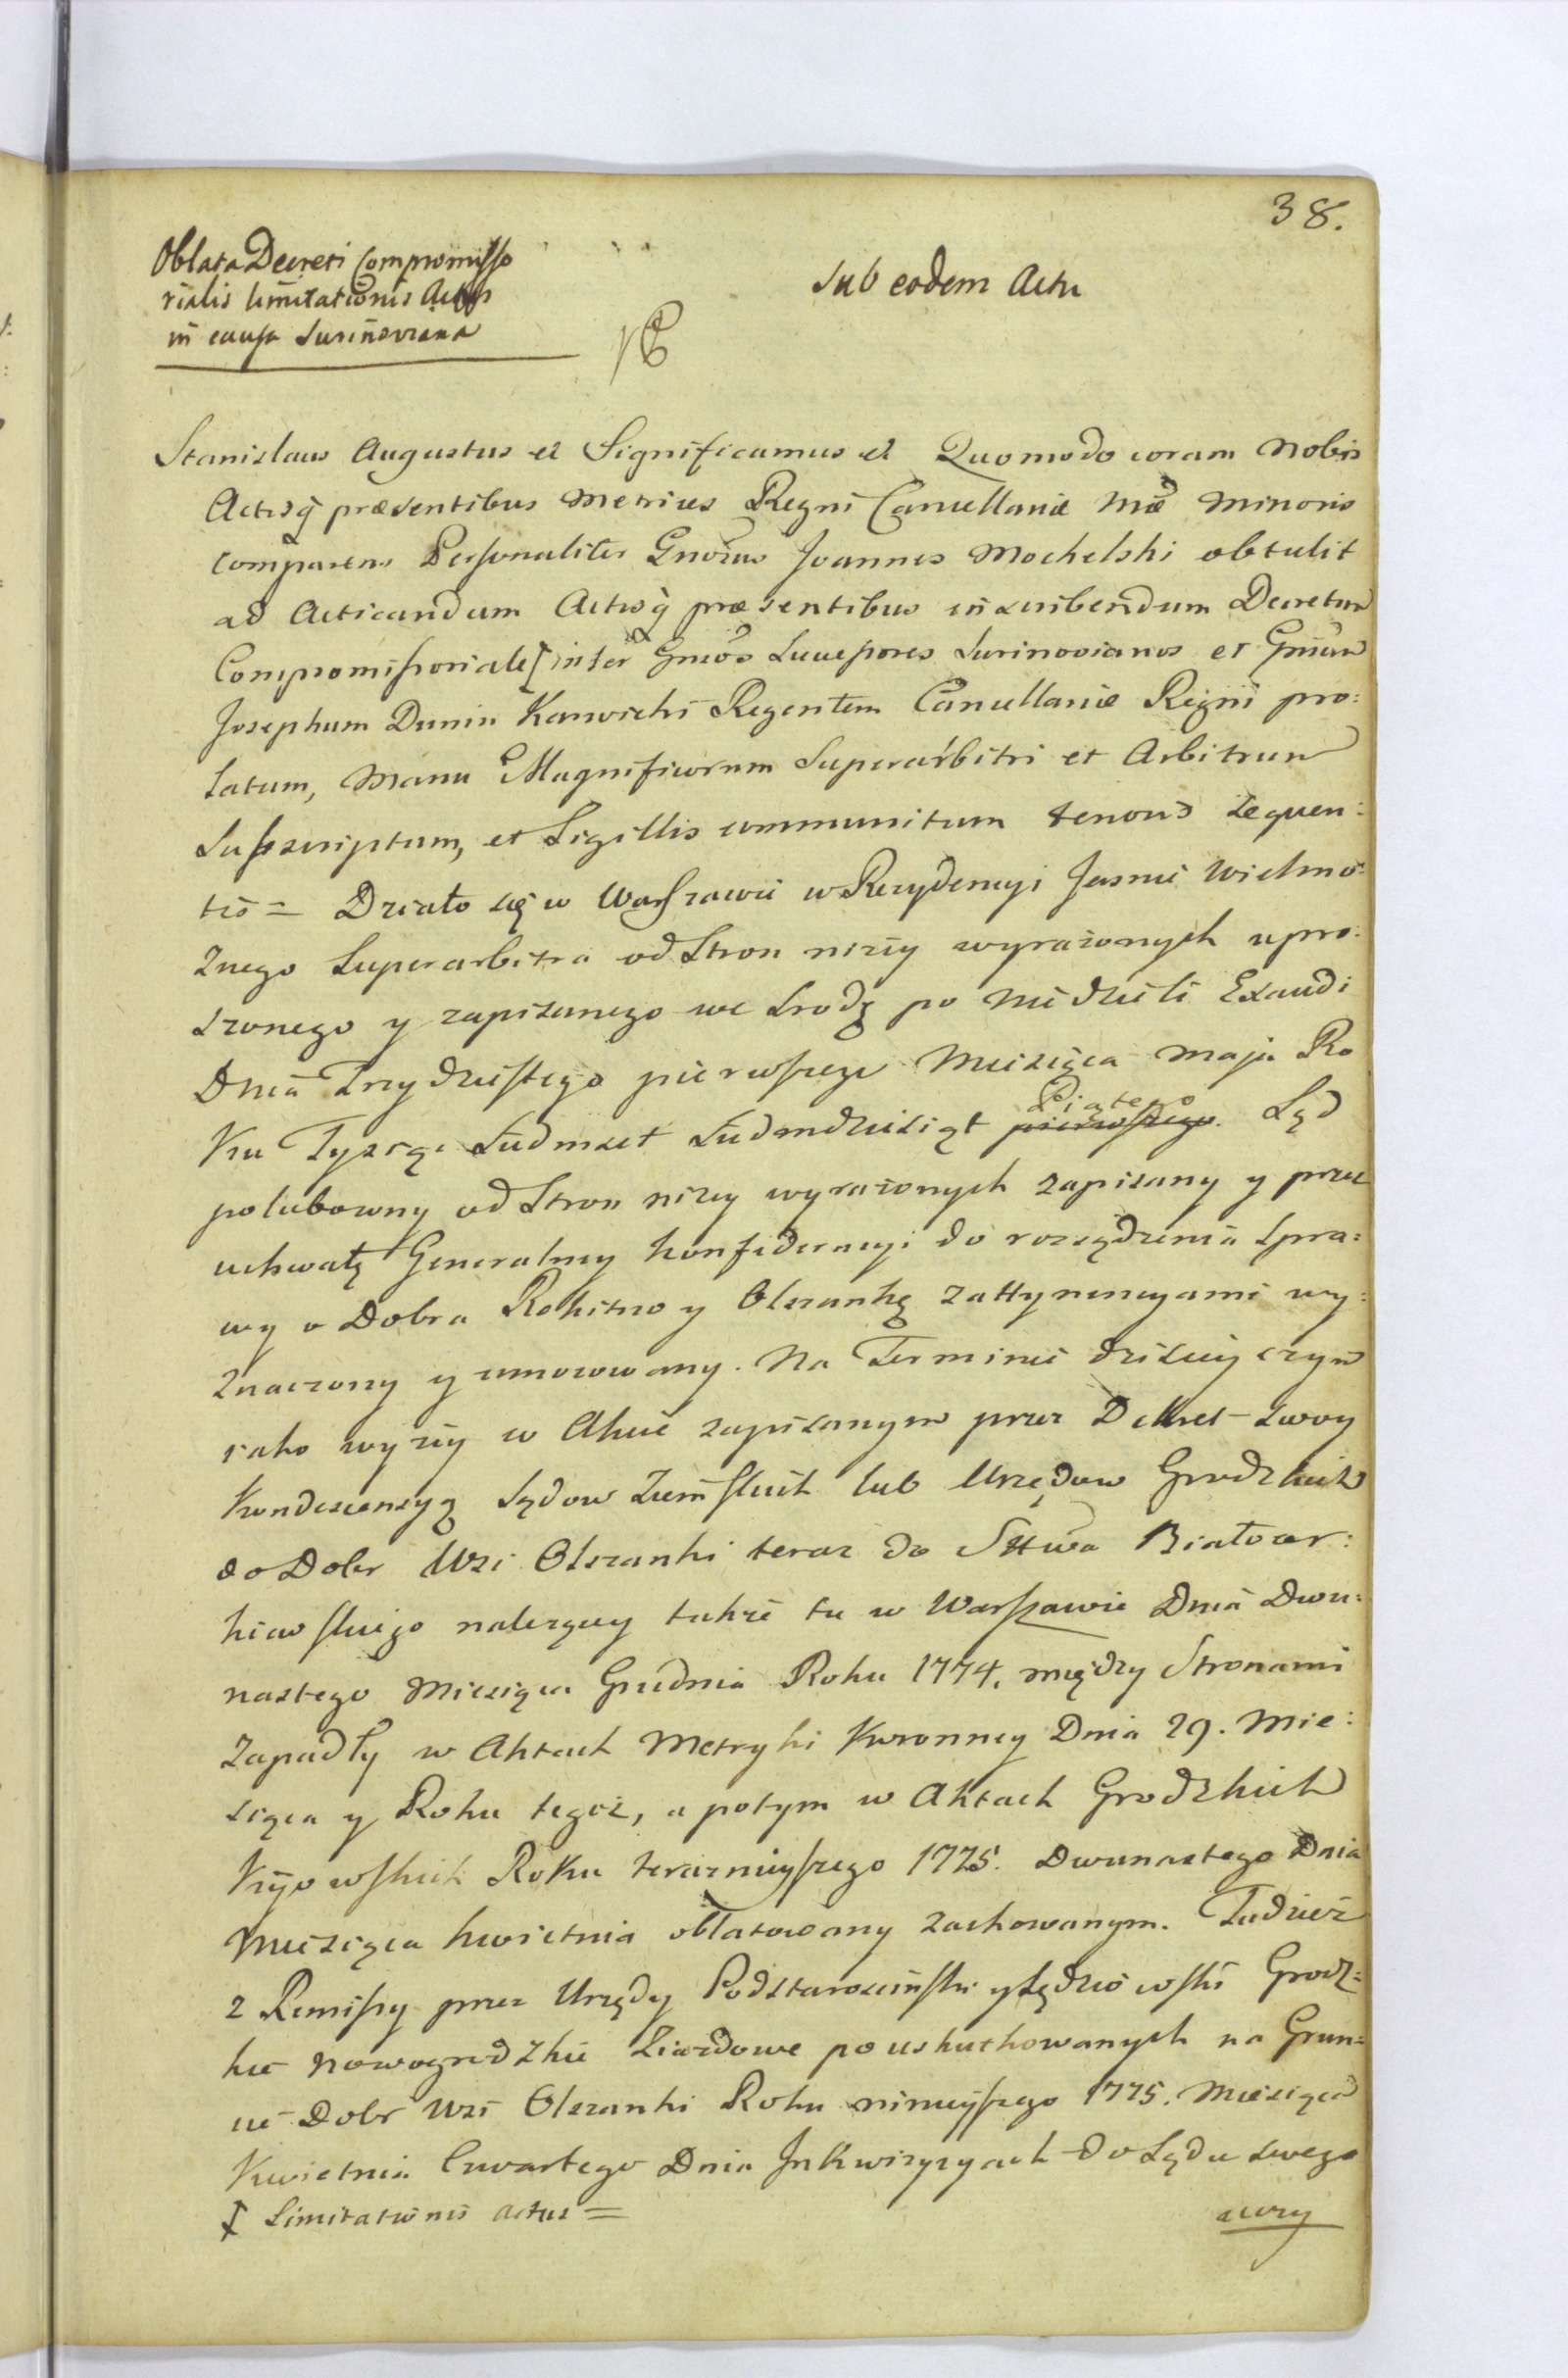 38.
Oblata Decreti Compromisso
rialis limitationis Actus
in causa Surinoviana
Sub eodem Actu
Stanislaus Augustus et Significamus et Quomodo coram Nobis
Actisq̃ præsentibus Metrices Regni Cancellariæ Mæ Minoris
comparens Personaliter Gnõsus Joannes Mochelski obtulit
ad Acticandum Actisq̃ præsentibus inscribendum Decretum
Compromissoriale ꝉ inter Gnõsos Successores Surinovianos et Gnõsum
Josephum Dunin Karwicki Regentem Cancellariæ Regni pro:
latum, Manu Magnificorum Superarbitri et Arbitrum
Subscriptum, et Sigillis communitum tenoris sequen:
tis = Działo się w Warszawie w Rezydencyi Jasnie Wielmo:
żnego Superarbitra od Stron niżey wyrażonych upro:
szonego y zapisanego we Srodę po Niedzieli Exaudi
Dnia Trzydziestego pierwszego Miesiąca Maja Ro
Ku Tysiąc Siedmset Siedmdziesiąt Piątego pierwszego. Sąd
polubowny od Stron niżey wyrażonych zapisany y przez
uchwałę Generalney konfederacyi do rozsądzenia spra:
wy o Dobra Rokitno y Olszankę z attynencyami wy:
znaczony y umocowany. Na Terminie dzisieyszym
iako wyżey w Akcie zapisanym przez Dekret swoy
Kondescensyą Sądow Ziemskich lub Urzędow Grodzkich
do Dobr Wsi Olszanki teraz do Sttwa Białocer:
kiewskiego należący takze tu w Warszawie Dnia Dwu:
nastego Miesiąca Grudnia Roku 1774. między Stronami
Zapadły w Aktach Metryki Koronney Dnia 29. Mie:
siąca y Roku tegoż, a potym w Aktach Grodzkich
Kijowskich Roku teraznieyszego 1775. Dwunastego Dnia
Miesiąca kwietnia oblatowany zachowanym. Tudzież
z Remissy przez Urzędy Podstarościńskie y Sędziowskie Grodz:
kie Nowogrodzkie Ziazdowe po uskutkowanych na Grun:
cie Dobr Wsi Olszanki Roku ninieyszego 1775. Miesiąca
Kwietnia Czwartego Dnia Inkwizycyach do Sądu swego
ꝉ Limitationis actus =